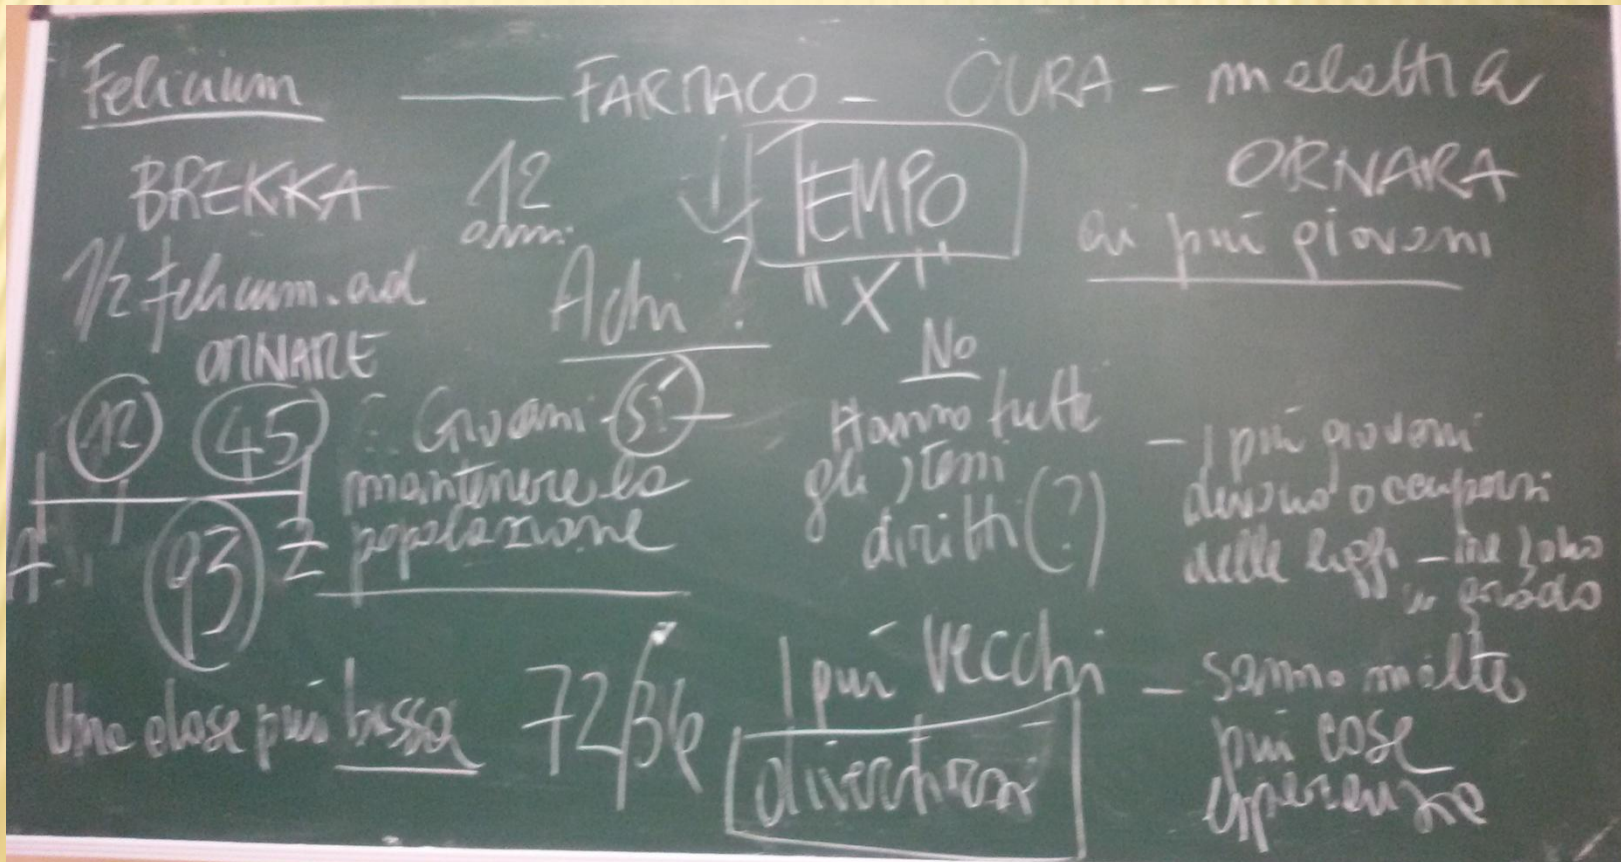 Felicium — FARMACO - CURA - malattia
BREKKA 12 anni ↓ TEMPO ORNARA
"X" ai più giovani
1/2 felicium ad ORNARE
A chi ?
12 45
93
Giovani sì
mantenere la
popolazione
No
Hanno tutti
gli stessi
diritti (?)
- I più giovani
devono occuparsi
delle leggi - ne sono
in grado
Una dose più bassa 72/36
I più vecchi
divertirsi
- sanno molte
più cose
esperienze